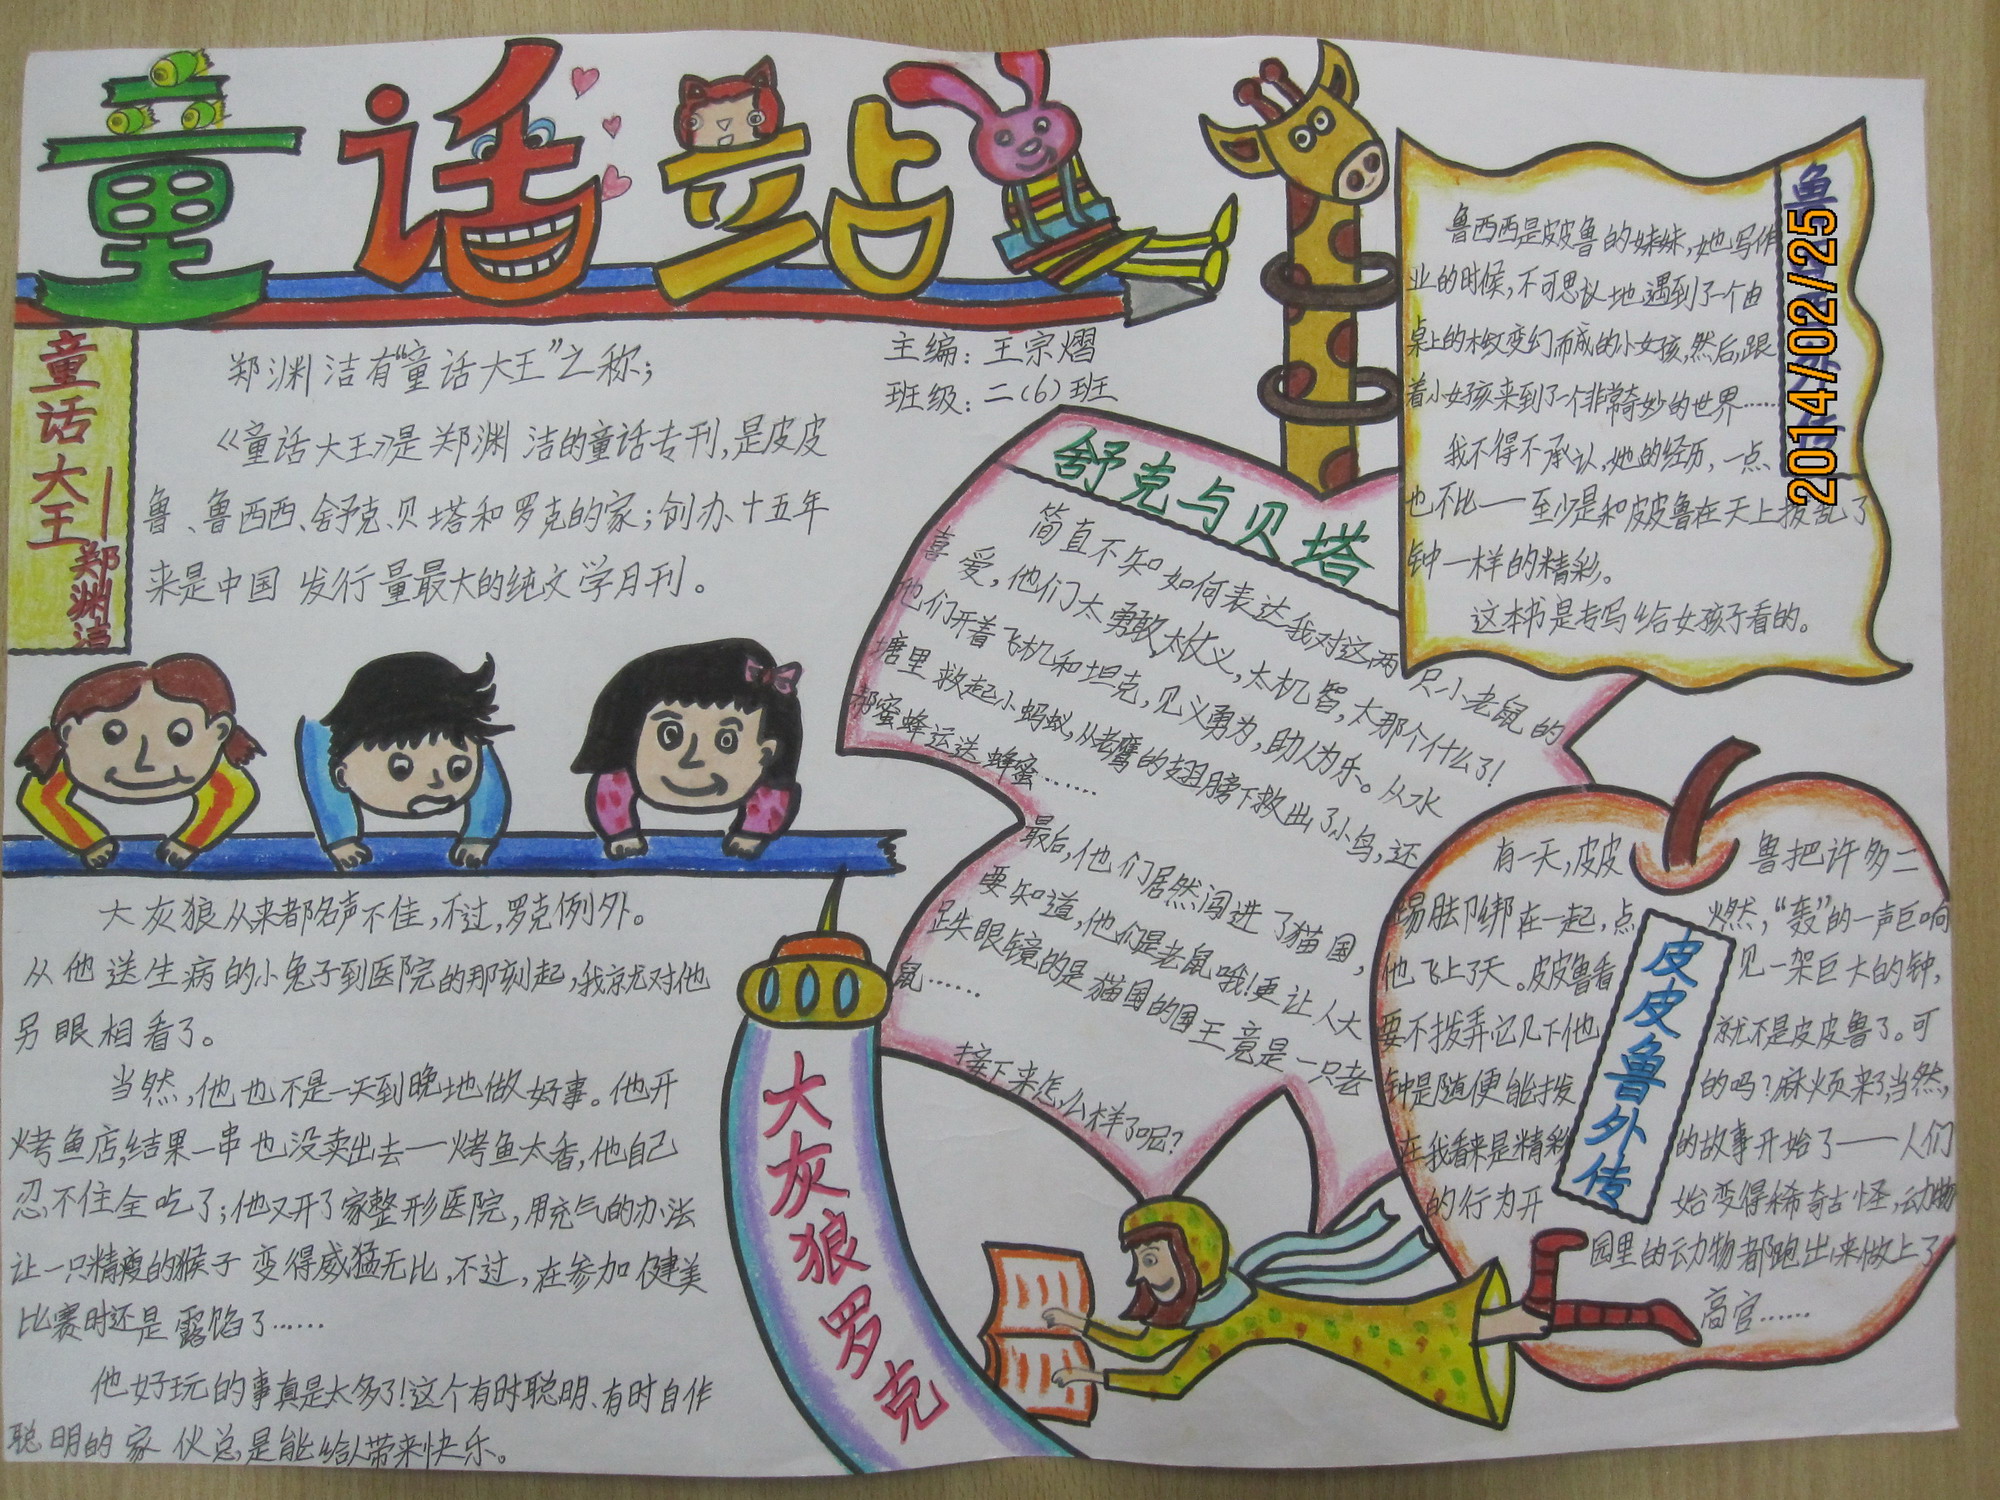 童话站
主编：王宗熠
班级：二（6）班
童话大王
——郑渊洁
郑渊洁有“童话大王”之称；
《童话大王》是郑渊洁的童话专刊，是皮皮
鲁、鲁西西、舒克、贝塔和罗克的家；创办十五年
来是中国发行量最大的纯文学月刊。
大灰狼从来都名声不佳，不过，罗克例外。
从他送生病的小兔子到医院的那刻起，我就对他
另眼相看了。
当然，他也不是一天到晚地做好事。他开
烤鱼店，结果一串也没卖出去——烤鱼太香，他自己
忍不住全吃了；他又开了家整形医院，用充气的办法
让一只精瘦的猴子变得威猛无比，不过，在参加健美
比赛时还是露馅了……
他好玩的事真是太多了！这个有时聪明、有时自作
聪明的家伙总是能给人带来快乐。
大灰狼罗克
舒克与贝塔
简直不知如何表达我对这两只小老鼠的
喜爱，他们太勇敢，太仗义，太机智，太那个什么了！
他们开着飞机和坦克，见义勇为，助人为乐。从水
塘里救起小蚂蚁，从老鹰的翅膀下救出了小鸟，还
帮蜜蜂运送蜂蜜……
最后，他们居然闯进了猫国，
要知道，他们是老鼠哦！更让人大
跌眼镜的是猫国的国王竟是一只老
鼠……
接下来怎么样了呢？
鲁
鲁西西是皮皮鲁的妹妹，她写作
业的时候，不可思议地遇到了一个由
桌上的木纹变幻而成的小女孩，然后，跟
着小女孩来到了一个非常奇妙的世界……
我不得不承认，她的经历，一点
也不比——至少是和皮皮鲁在天上拨乱了
钟一样的精彩。
这本书是专写给女孩子看的。
2014/02/25
皮皮鲁外传
有一天，皮皮鲁把许多二
踢脚绑在一起，点燃，“轰”的一声巨响
他飞上了天。皮皮鲁看见一架巨大的钟，
要不拨弄它几下他就不是皮皮鲁了。可
钟是随便能拨的吗？麻烦来了，当然，
在我看来是精彩的故事开始了——人们
的行为开始变得稀奇古怪，动物
园里的动物都跑出来做上了
高官……